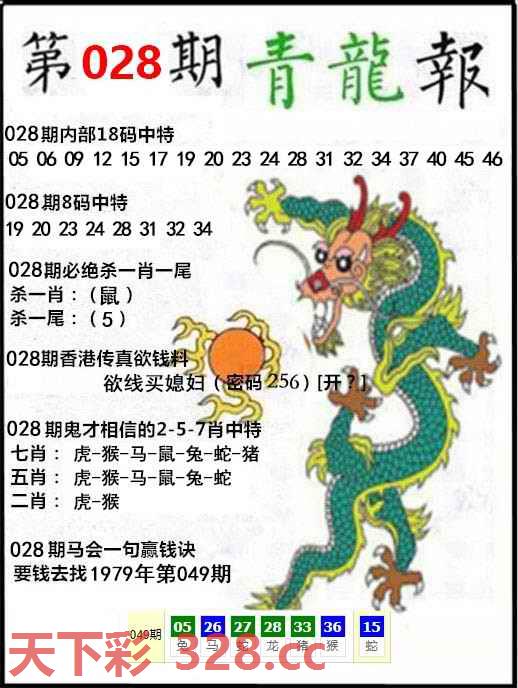 第028期青龍報
028期内部18码中特
05 06 09 12 15 17 19 20 23 24 28 31 32 34 37 40 45 46
028期8码中特
19 20 23 24 28 31 32 34
028期必绝杀一肖一尾
杀一肖：（鼠）
杀一尾：（5）
028期香港传真欲钱料
欲线买媳妇（密码256）[开？]
028期鬼才相信的2-5-7肖中特
七肖： 虎-猴-马-鼠-兔-蛇-猪
五肖： 虎-猴-马-鼠-兔-蛇
二肖： 虎-猴
028期马会一句赢钱诀
要钱去找1979年第049期
049期 05 26 27 28 33 36 15
兔 马 蛇 龙 猪 猴 蛇
天下彩 328.cc